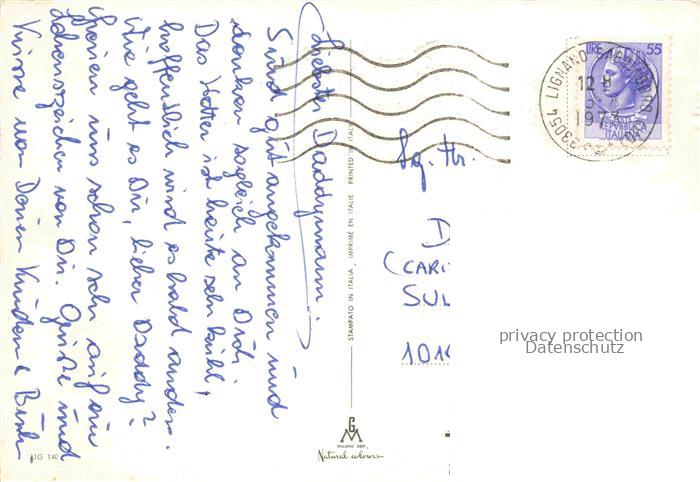 Liebster Daddymann.
Sind gut angekommen und
denken sogleich an Dich.
Das Wetter ist heute sehr kühl,
hoffentlich wird es bald anders.
Wie geht es Dir, lieber Daddy?
freuen uns schon sehr auf ein
Lebenszeichen von Dir. Grüsse und
Küsse von Deinen Kindern &
STAMPATO IN ITALIA, IMPRIMÉ EN ITALIE PRINTED IN ITALY
GM
MILANO
Natural colours
JG 140
LIRE 55
REPUBBLICA
ITALIANA
33054 LIGNANO SABBIADORO
12
197
Sg. Hr.
D
(CARI
SUL
101
privacy protection
Datenschutz